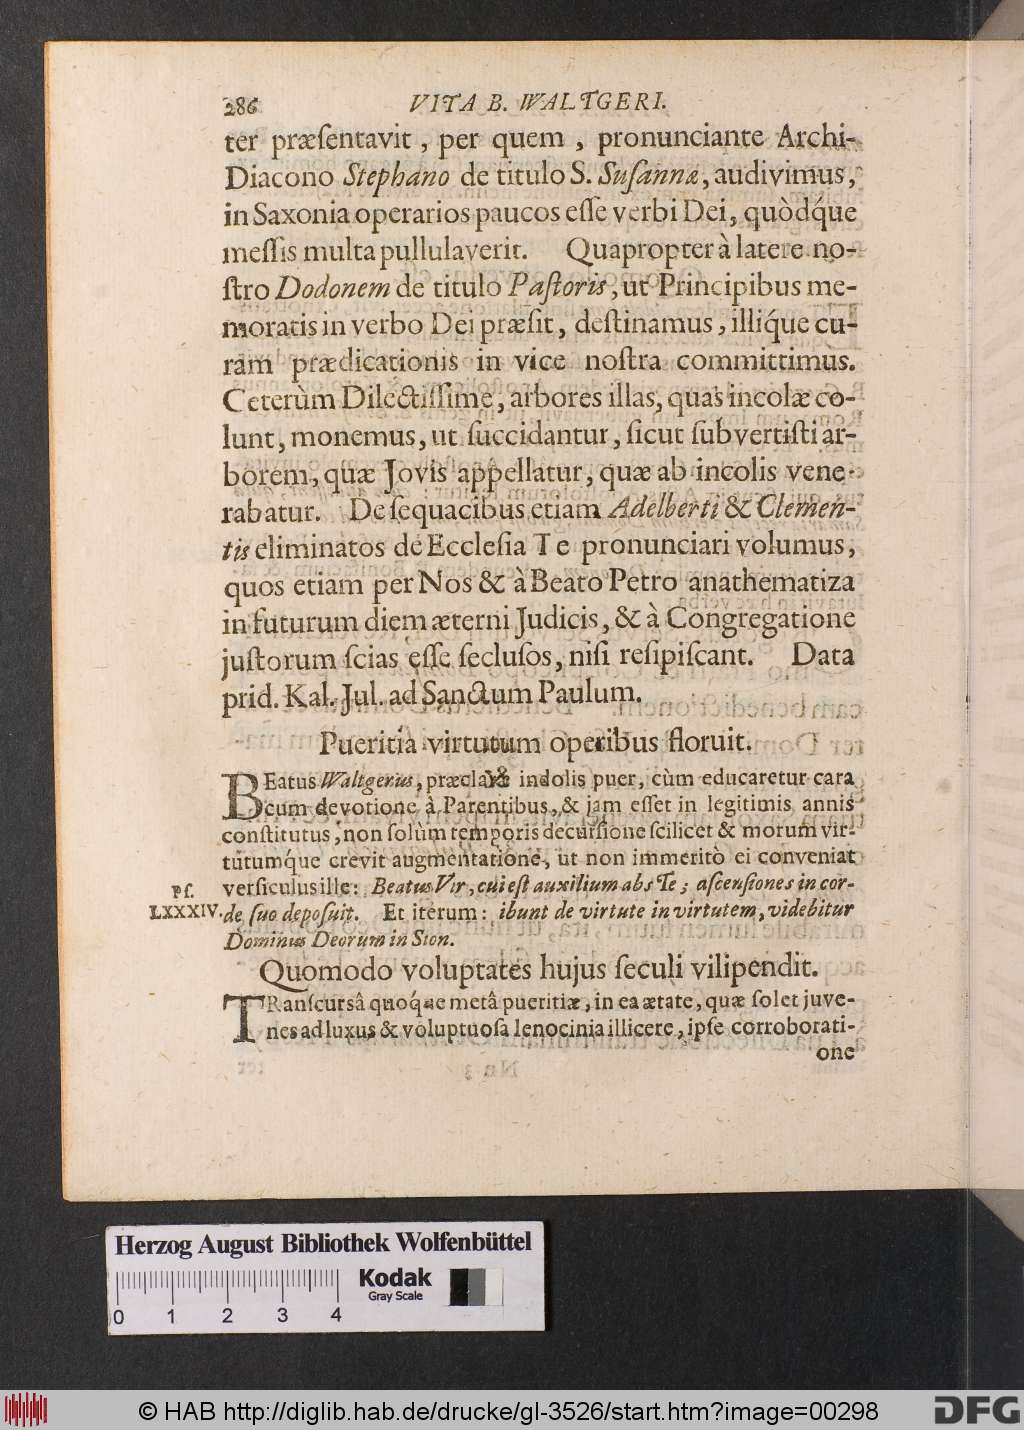 286 VITA B. WALTGERI.
ter præſentavit, per quem, pronunciante Archi-
Diacono Stephano de titulo S. Suſannæ, audivimus,
in Saxonia operarios paucos eſſe verbi Dei, quòdq́ue
meſſis multa pullulaverit. Quapropter à latere no-
ſtro Dodonem de titulo Paſtoris, ut Principibus me-
moratis in verbo Dei præſit, deſtinamus, illiq́ue cu-
ram prædicationis in vice noſtra committimus.
Ceterùm Dilectiſſime, arbores illas, quas incolæ co-
lunt, monemus, ut ſuccidantur, ſicut ſubvertiſti ar-
borem, quæ Jovis appellatur, quæ ab incolis vene-
rabatur. De ſequacibus etiam Adelberti & Clemen-
tis eliminatos de Eccleſia Te pronunciari volumus,
quos etiam per Nos & à Beato Petro anathematiza
in futurum diem æterni Judicis, & à Congregatione
juſtorum ſcias eſſe ſecluſos, niſi reſipiſcant. Data
prid. Kal. Jul. ad Sanctum Paulum.
Pueritia virtutum operibus floruit.
BEatus Waltgerius, præclaræ indolis puer, cùm educaretur cara
cum devotione à Parentibus, & jam eſſet in legitimis annis
conſtitutus, non ſolùm temporis decurſione ſcilicet & morum vir-
tutumq́ue crevit augmentatione, ut non immeritò ei conveniat
Pſ. LXXXIV.
verſiculus ille: Beatus Vir, cui eſt auxilium abs Te; aſcenſiones in cor-
de ſuo depoſuit. Et iterum: ibunt de virtute in virtutem, videbitur
Dominus Deorum in Sion.
Quomodo voluptates hujus ſeculi vilipendit.
TRanſcursâ quoq́ue metâ pueritiæ, in ea ætate, quæ ſolet juve-
nes ad luxus & voluptuoſa lenocinia illicere, ipſe corroborati-
one
Herzog August Bibliothek Wolfenbüttel
Kodak
Gray Scale
0 1 2 3 4
© HAB http://diglib.hab.de/drucke/gl-3526/start.htm?image=00298
DFG